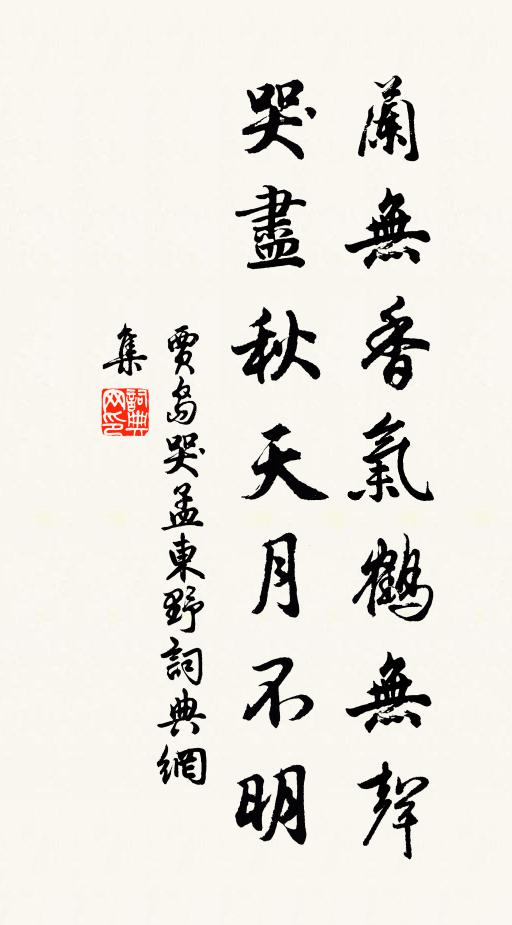 蘭無香氣鶴無聲
哭盡秋天月不明
賈島哭孟東野詞典網
集
詞典網印